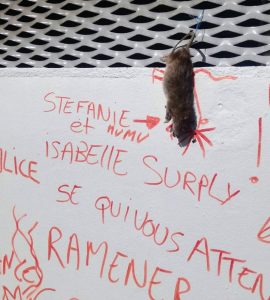 STEFANIE
et MUMU
ISABELLE SURPLY !
ALICE
SE QUI VOUS ATTEN
RAMENER